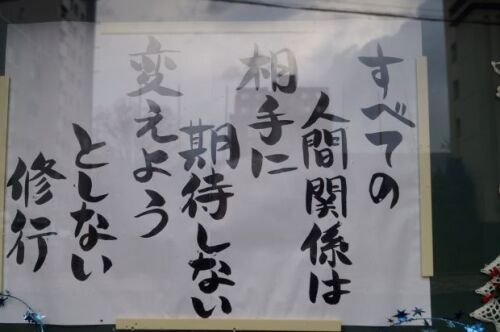 すべての
人間関係は
相手に
期待しない
変えよう
としない
修行